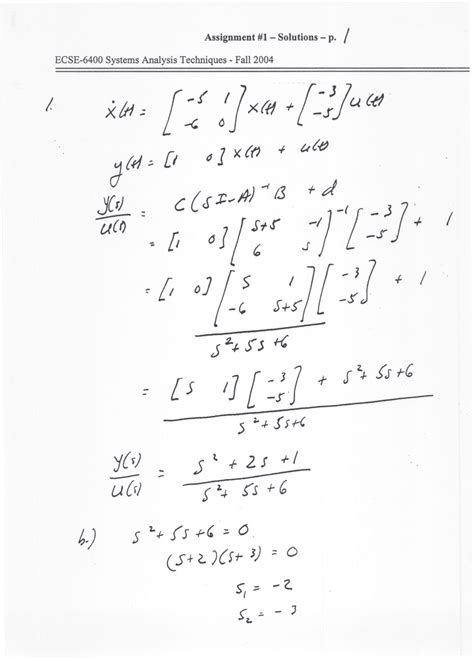 Assignment #1 – Solutions – p. 1
ECSE-6400 Systems Analysis Techniques - Fall 2004
1. ẋ(t) = [-5 1; -6 0] x(t) + [-3; -5] u(t)
y(t) = [1 0] x(t) + u(t)
y(s)/u(s) = C(SI-A)⁻¹B + d
= [1 0] [s+5 -1; 6 s]⁻¹ [-3; -5] + 1
= [1 0] [s 1; -6 s+5] [-3; -5] / s²+5s+6 + 1
= [s 1] [-3; -5] + s²+5s+6 / s²+5s+6
y(s)/u(s) = s²+2s+1 / s²+5s+6
b.) s²+5s+6 = 0
(s+2)(s+3) = 0
s₁ = -2
s₂ = -3